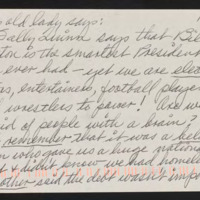 old lady says:
Sally Quinn says that
ton is the smartest President
ever had – yet we are elec
rs, entertainers, football player
wrestlers to power! Are we
id of people with a brain?
remember that it was a
who gave us a huge nationa
didn't know we had homel
other said the debt wasn't impor